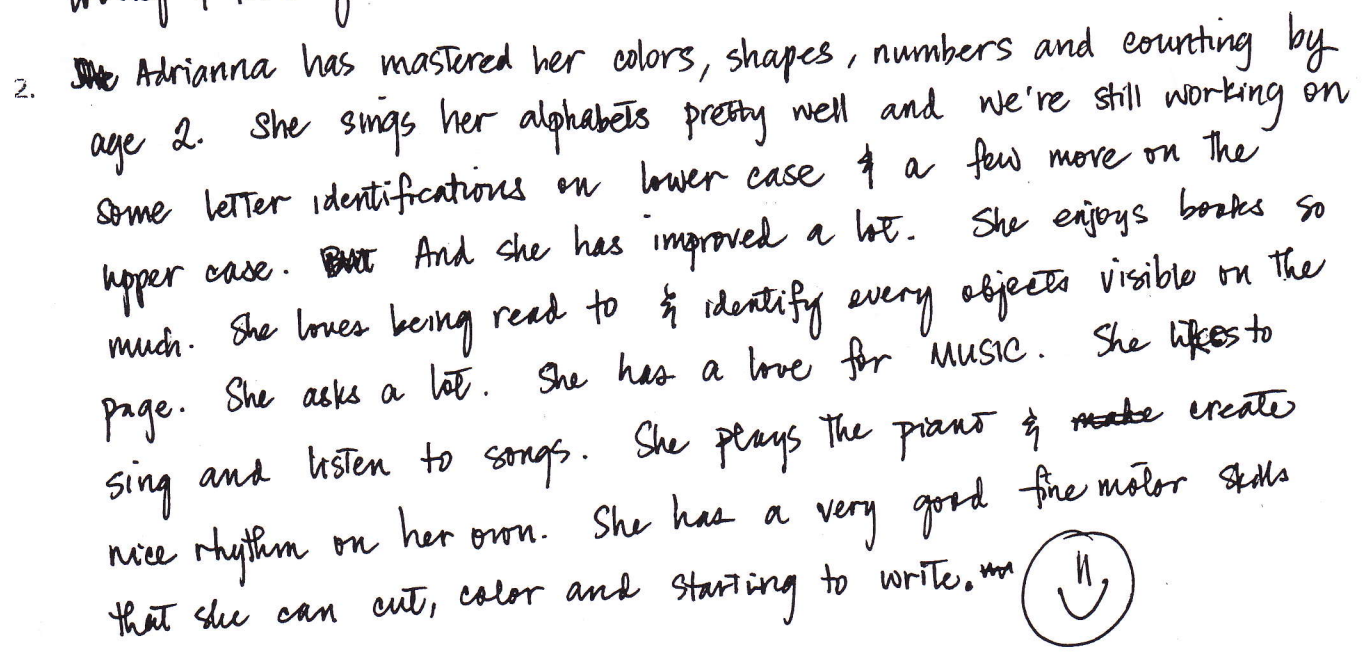 2. She Adrianna has mastered her colors, shapes, numbers and counting by
age 2. She sings her alphabets pretty well and we're still working on
some letter identifications on lower case & a few more on the
upper case. But And she has improved a lot. She enjoys books so
much. She loves being read to & identify every objects visible on the
page. She asks a lot. She has a love for MUSIC. She likes to
sing and listen to songs. She plays the piano & make create
nice rhythm on her own. She has a very good fine motor skills
that she can cut, color and starting to write.